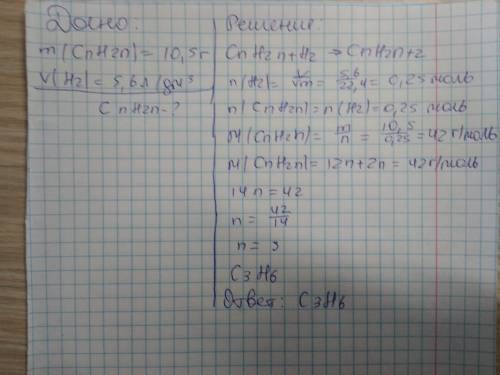 Дано:
m(CnH2n) = 10,5г
V(H2) = 5,6л/дм³
CnH2n-?
Решение:
CnH2n+H2 → CnH2n+2
n(H2) = V/Vm = 5,6/22,4 = 0,25 моль
n(CnH2n) = n(H2) = 0,25 моль
M(CnH2n) = m/n = 10,5/0,25 = 42 г/моль
M(CnH2n) = 12n+2n = 42г/моль
14n = 42
n = 42/14
n = 3
C3H6
Ответ: C3H6